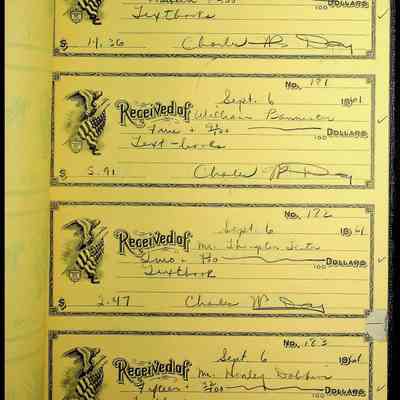 100 DOLLARS
Textbooks
$ 14.36 Charles W. Day
No. 181
Sept. 6 1961
Received of William Bannister
Five + 91/100 DOLLARS
Text-books
$ 5.91 Charles W. Day
No. 182
Sept. 6 1961
Received of Mr.
Two + 47/100 DOLLARS
100
Textbook
$ 2.47 Charles W. Day
No. 183
Sept. 6 1961
Received of Mr. Henley
Fifteen + DOLLARS
100